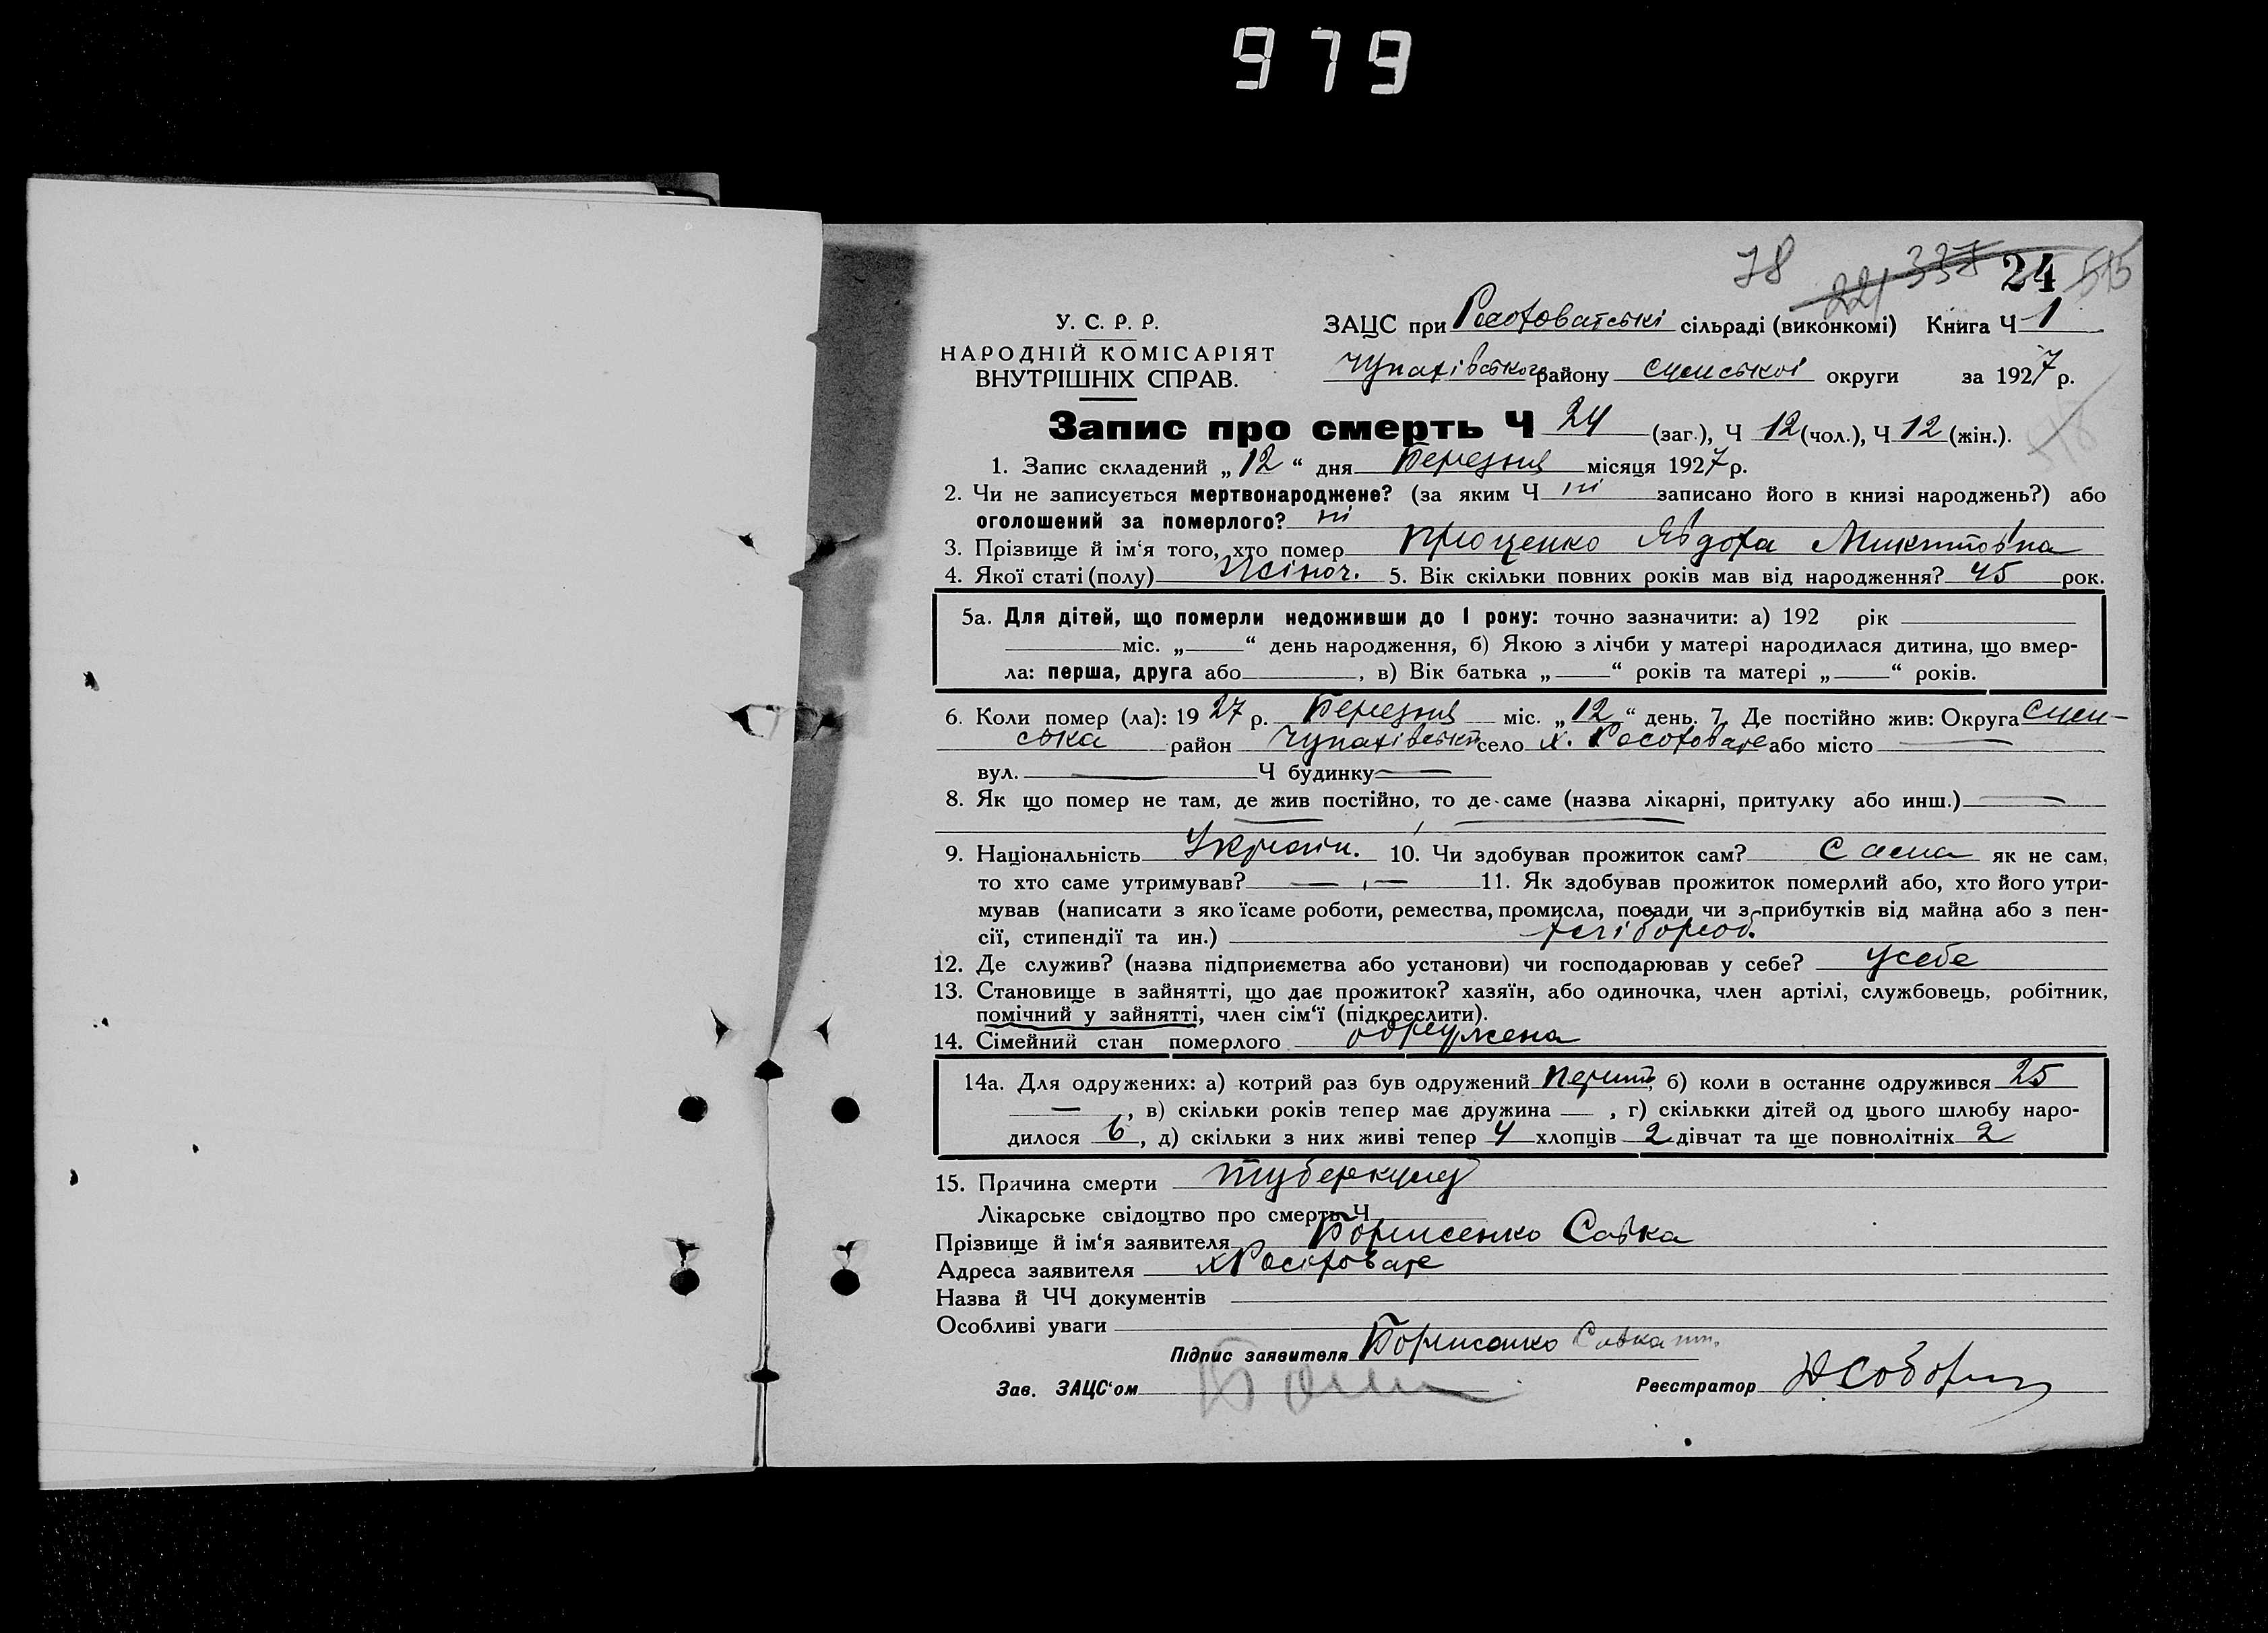 979
78 221 337 24 515
У. С. Р. Р.
НАРОДНІЙ КОМІСАРІЯТ
ВНУТРІШНІХ СПРАВ.
ЗАЦС при Росоховатській сільраді (виконкомі) Книга Ч 1
Чупахівського району Сумської округи за 1927 р.
518
Запис про смерть Ч 24 (заг.), Ч 12 (чол.), Ч 12 (жін.).
1. Запис складений „12“ дня Березня місяця 1927 р.
2. Чи не записується мертвонароджене? (за яким Ч ні записано його в книзі народжень?) або
оголошений за померлого? ні
3. Прізвище й ім‘я того, хто помер Проценко Явдоха Микитовна
4. Якої статі (полу) Жіноч. 5. Вік скільки повних років мав від народження? 45 рок.
5а. Для дітей, що померли недоживши до 1 року: точно зазначити: а) 192 рік
міс. „ “ день народження, б) Якою з лічби у матері народилася дитина, що вмер-
ла: перша, друга або , в) Вік батька „ “ років та матері „ “ років.
6. Коли помер (ла): 1927 р. Березня міс. „12“ день. 7. Де постійно жив: Округа Сум-
ська район Чупахівськ село х. Росоховате або місто —
вул. — Ч будинку —
8. Як що помер не там, де жив постійно, то де саме (назва лікарні, притулку або инш.) —
9. Національність Україн. 10. Чи здобував прожиток сам? Сама як не сам,
то хто саме утримував? — 11. Як здобував прожиток померлий або, хто його утри-
мував (написати з яко їсаме роботи, ремества, промисла, посади чи з прибутків від майна або з пен-
сії, стипендії та ин.) хліборob.
12. Де служив? (назва підприємства або установи) чи господарював у себе? усебе
13. Становище в зайнятті, що дає прожиток? хазяїн, або одиночка, член артілі, службовець, робітник,
помічний у зайнятті, член сім‘ї (підкреслити).
14. Сімейний стан померлого одружена
14а. Для одружених: а) котрий раз був одружений перший, б) коли в останнє одружився 25
— , в) скільки років тепер має дружина — , г) скількки дітей од цього шлюбу наро-
дилося 6, д) скільки з них живі тепер 4 хлопців 2 дівчат та ще повнолітніх 2
15. Причина смерти туберкульоз
Лікарське свідоцтво про смерть Ч
Прізвище й ім‘я заявителя Борисенко Савка
Адреса заявителя х Росоховате
Назва й ЧЧ документів
Особливі уваги
Підпис заявителя Борисенко Савка
Зав. ЗАЦС‘ом
Реєстратор